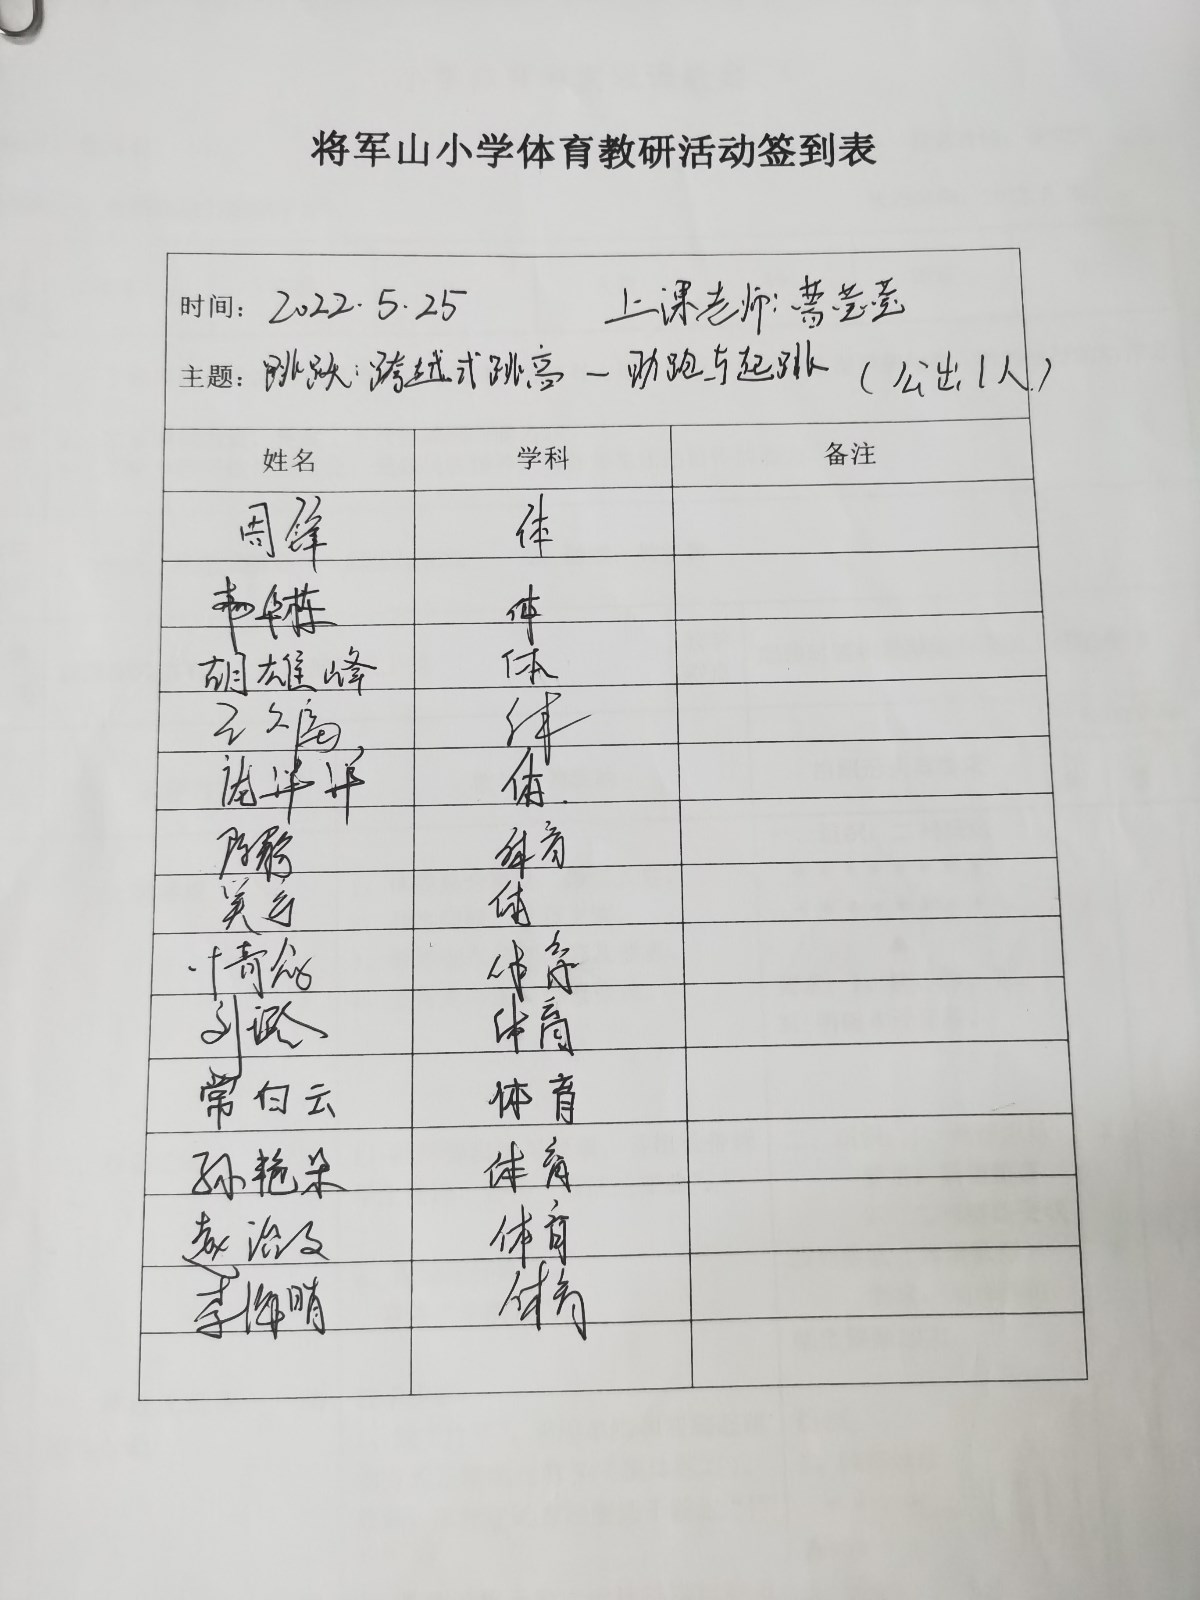 将军山小学体育教研活动签到表
时间: 2022.5.25 上课老师:莹莹
主题: 跳跃:跨越式跳高一助跑与起跳 (公出1人)
姓名 学科 备注
周锋 体
华栋 体
胡雄峰 体
体
体
陈 体育
吴 体
叶青 体育
刘 体育
常白云 体育
孙艳朵 体育
赵治文 体育
李海晴 体育